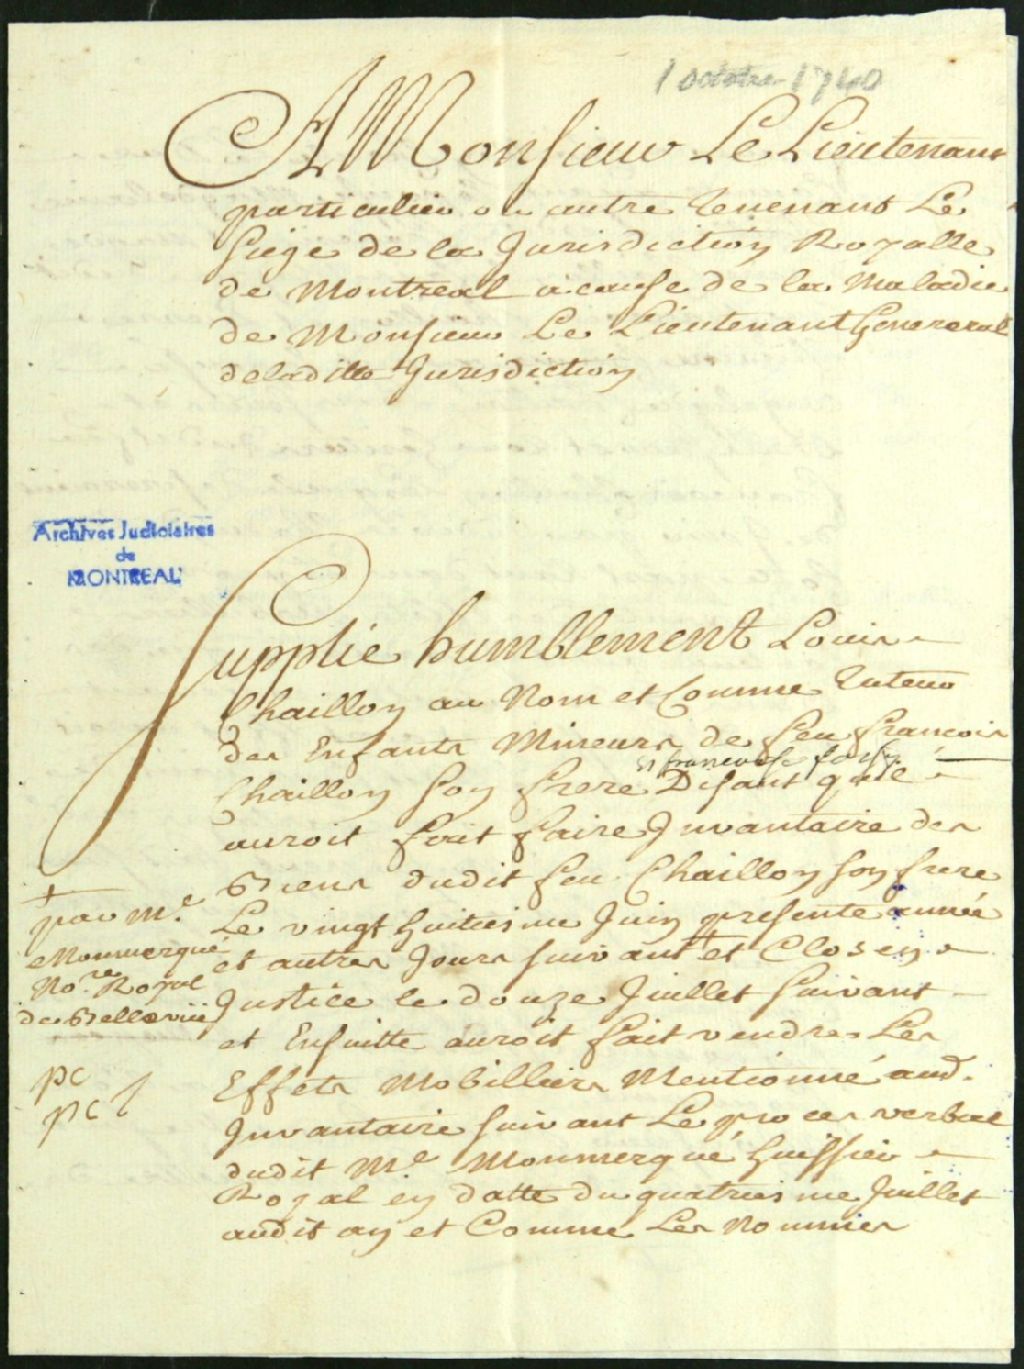 1 octobre 1740
A Monsieur Le Lieutenant
particulier ou autre Tenenant Le
Siege de la Jurisdiction Royalle
de Montreal a cause de la Maladie
de Monsieur Le Lieutenant Genereral
deladitte Jurisdiction
Archives Judiciaires
de
MONTREAL
Supplie humblement Louis
Chaillon au Nom et Comme Tuteur
des Enfants Mineurs de feu francois
Chaillon son frere Disant qu'il
et francoise
auroit fait faire Inventaire des
Biens dudit feu Chaillon son frere
Le vingt huitiesme Juin presente année
et autres Jours suivant + et Closen
Justice le douze Juillet suivant
et Ensuitte auroit fait vendre Les
Effets Mobilliers Mentionné aud.
Inventaire suivant Le proces verbal
dudit Me Monmerqué huissier
Royal en datte du quatriesme Juillet
audit an et Comme Les Nommés
+
par Me
Monmerqué
Nore Royal
de Bellevüe
pc
pc l